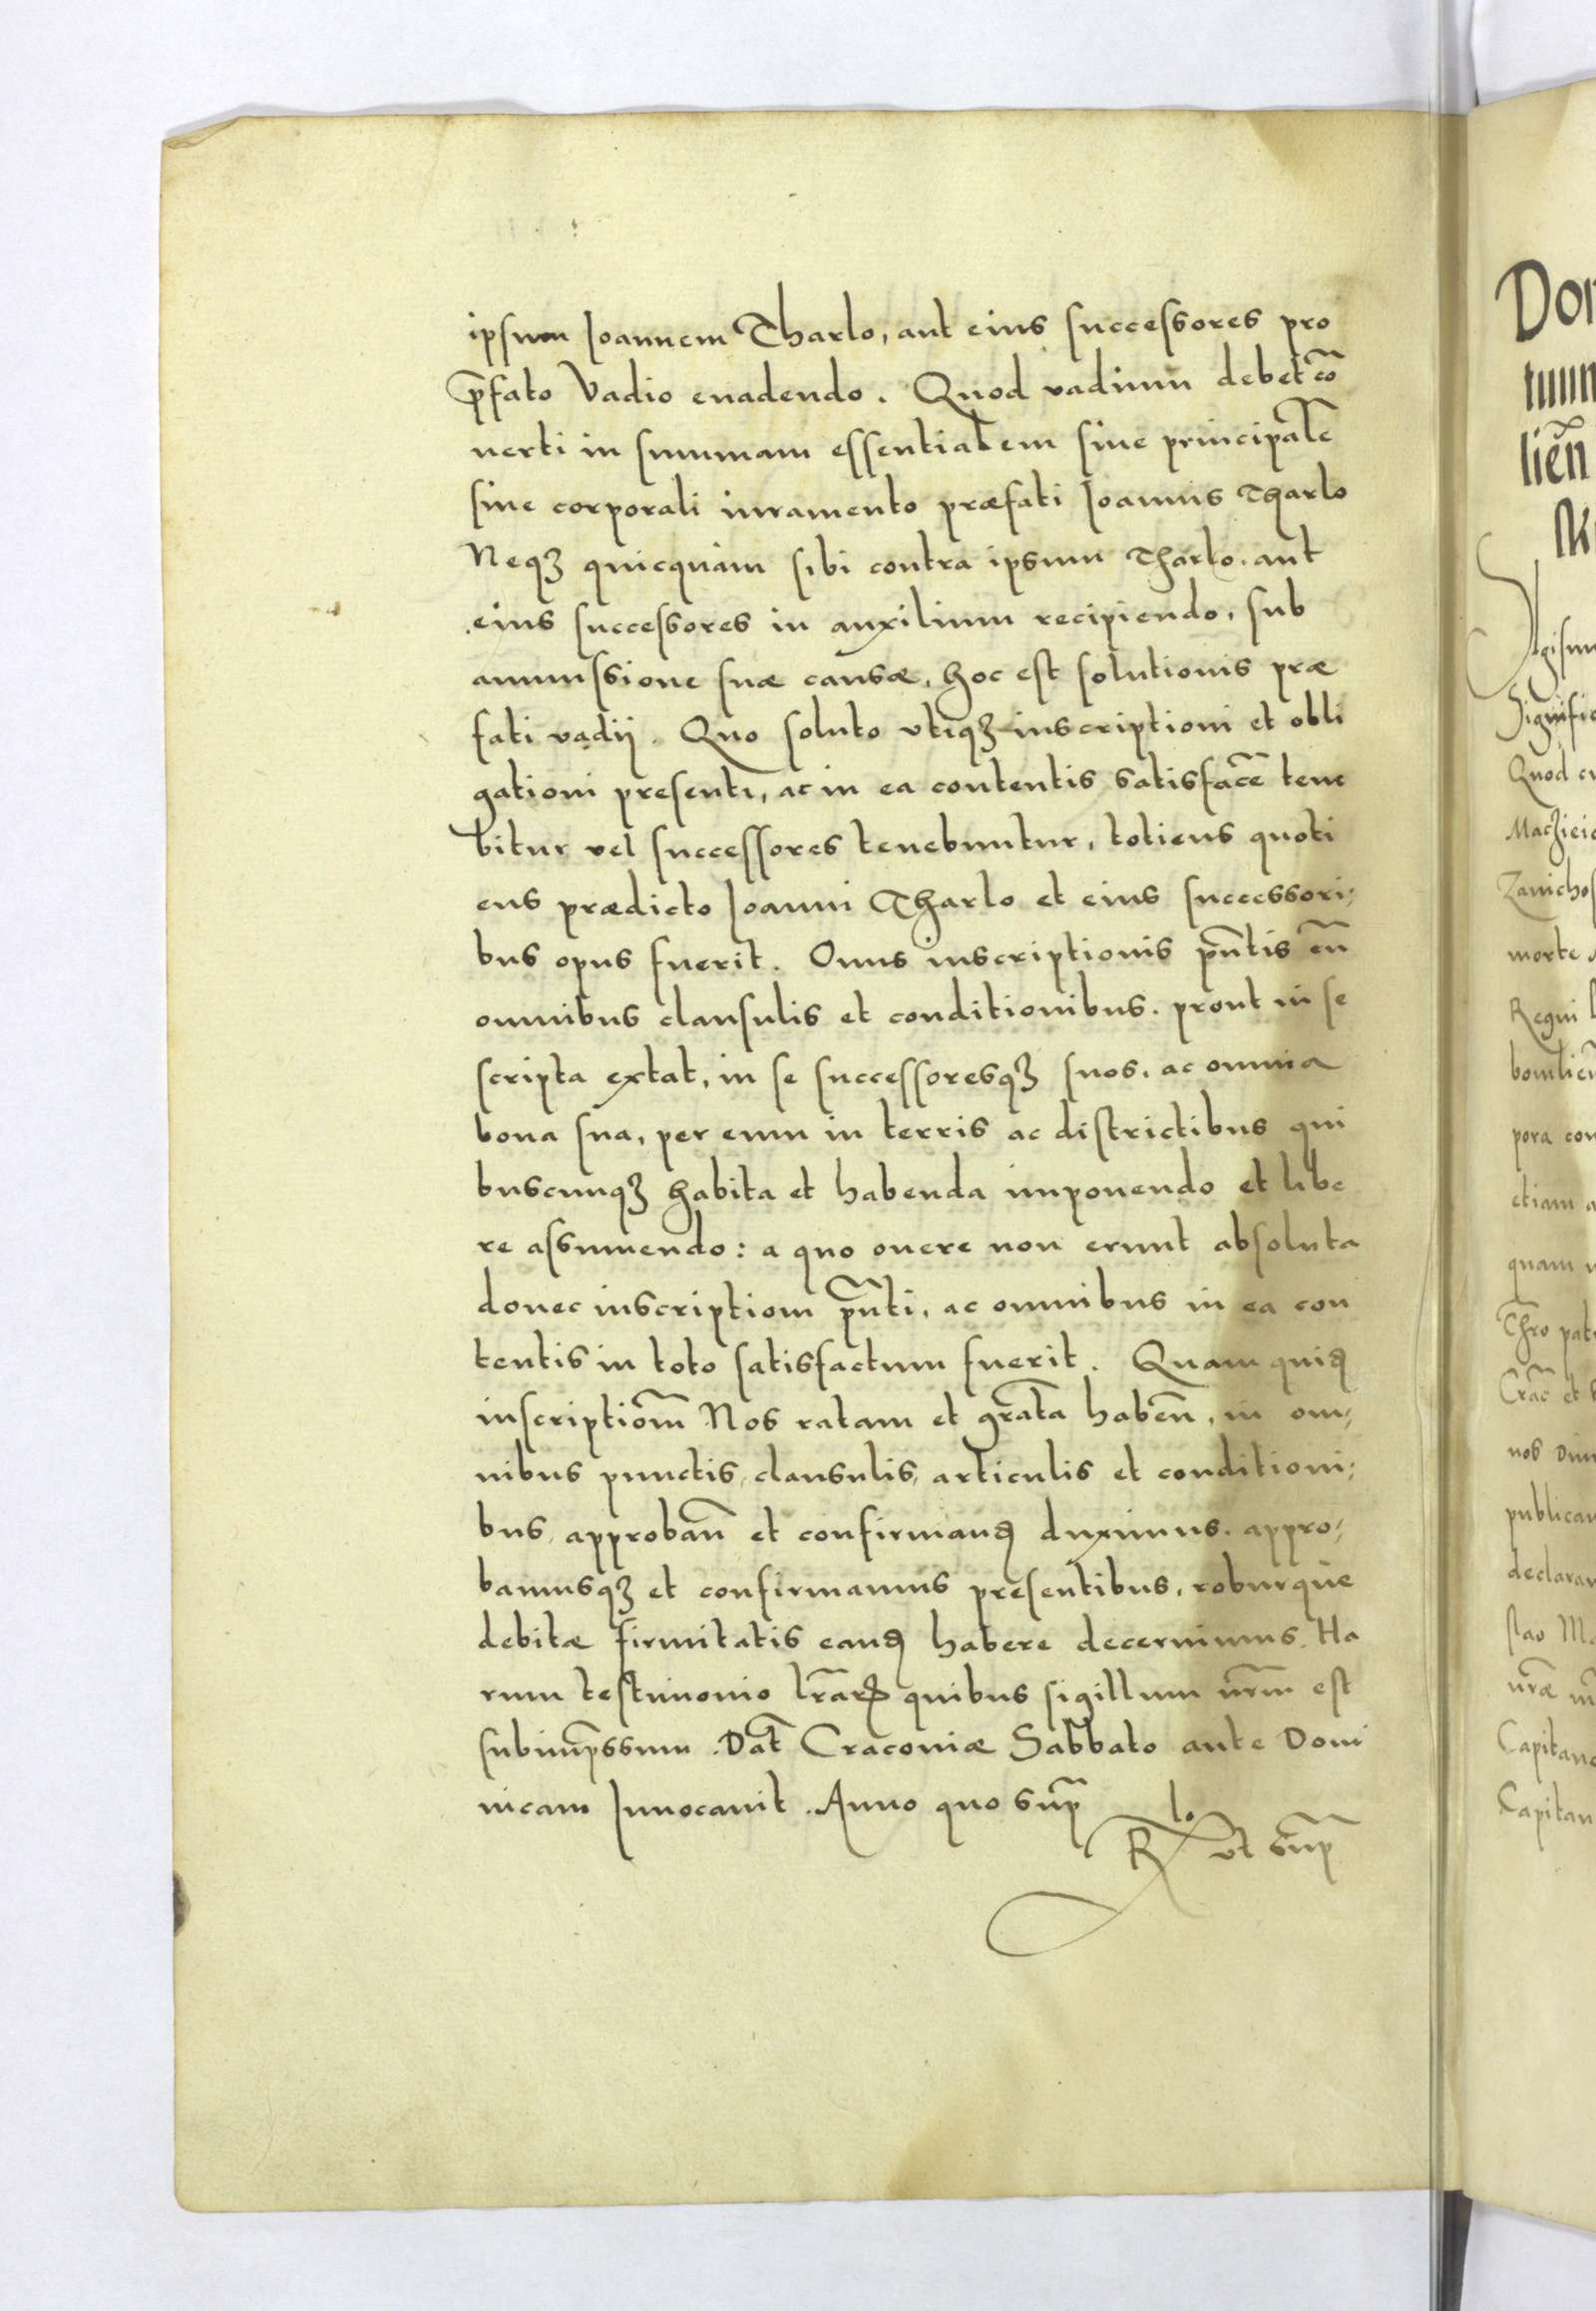 ipsum Joannem Tharlo, aut eius successores pro
p̄fato Vadio euadendo. Quod vadium debet cō
uerti in summam essentialem siue principalē
sine corporali iuramento præfati Joannis Tharlo
Neqꝫ quicquam sibi contra ipsum Tharlo, aut
eius successores in auxilium recipiendo, sub
ammissione suæ causæ, hoc est solutionis præ
fati vadij. Quo soluto vtiqꝫ inscriptioni et obli
gationi presenti, ac in ea contentis satisfacē tene
bitur vel successores tenebuntur, totiens quoti
ens prædicto Joanni Tharlo et eius successori;
bus opus fuerit. Onus inscriptionis pn̄tis cū
omnibus clausulis et conditionibus, prout in se
scripta extat, in se successoresqꝫ suos, ac omnia
bona sua, per eum in terris ac districtibus qui
buscunqꝫ habita et habenda imponendo et libe
re assumendo: a quo onere non erunt absoluta
donec inscriptioni pn̄ti, ac omnibus in ea con
tentis in toto satisfactum fuerit. Quam quid
inscriptiōm Nos ratam et gratā habeñ, in om;
nibus punctis, clausulis, articulis et conditioni;
bus, approbañ et confirmand duximus, appro;
bamusqꝫ et confirmamus presentibus, roburque
debitæ firmitatis eand habere decernimus. Ha
rum testimonio lr̄arꝝ quibus sigillum nr̄m est
subimp̄ssum. Dat̄ Cracoviæ Sabbato ante Domi
nicam Inuocauit. Anno quo sup̄
Rlo vt sup̄
Quod
Macziei
Zawichos
morte
Regni
pora con
etiam a
quam
Thro pat
Crac̄ et
nos
publican
declarav
slao Ma
nr̄æ
Capitane
Capitan